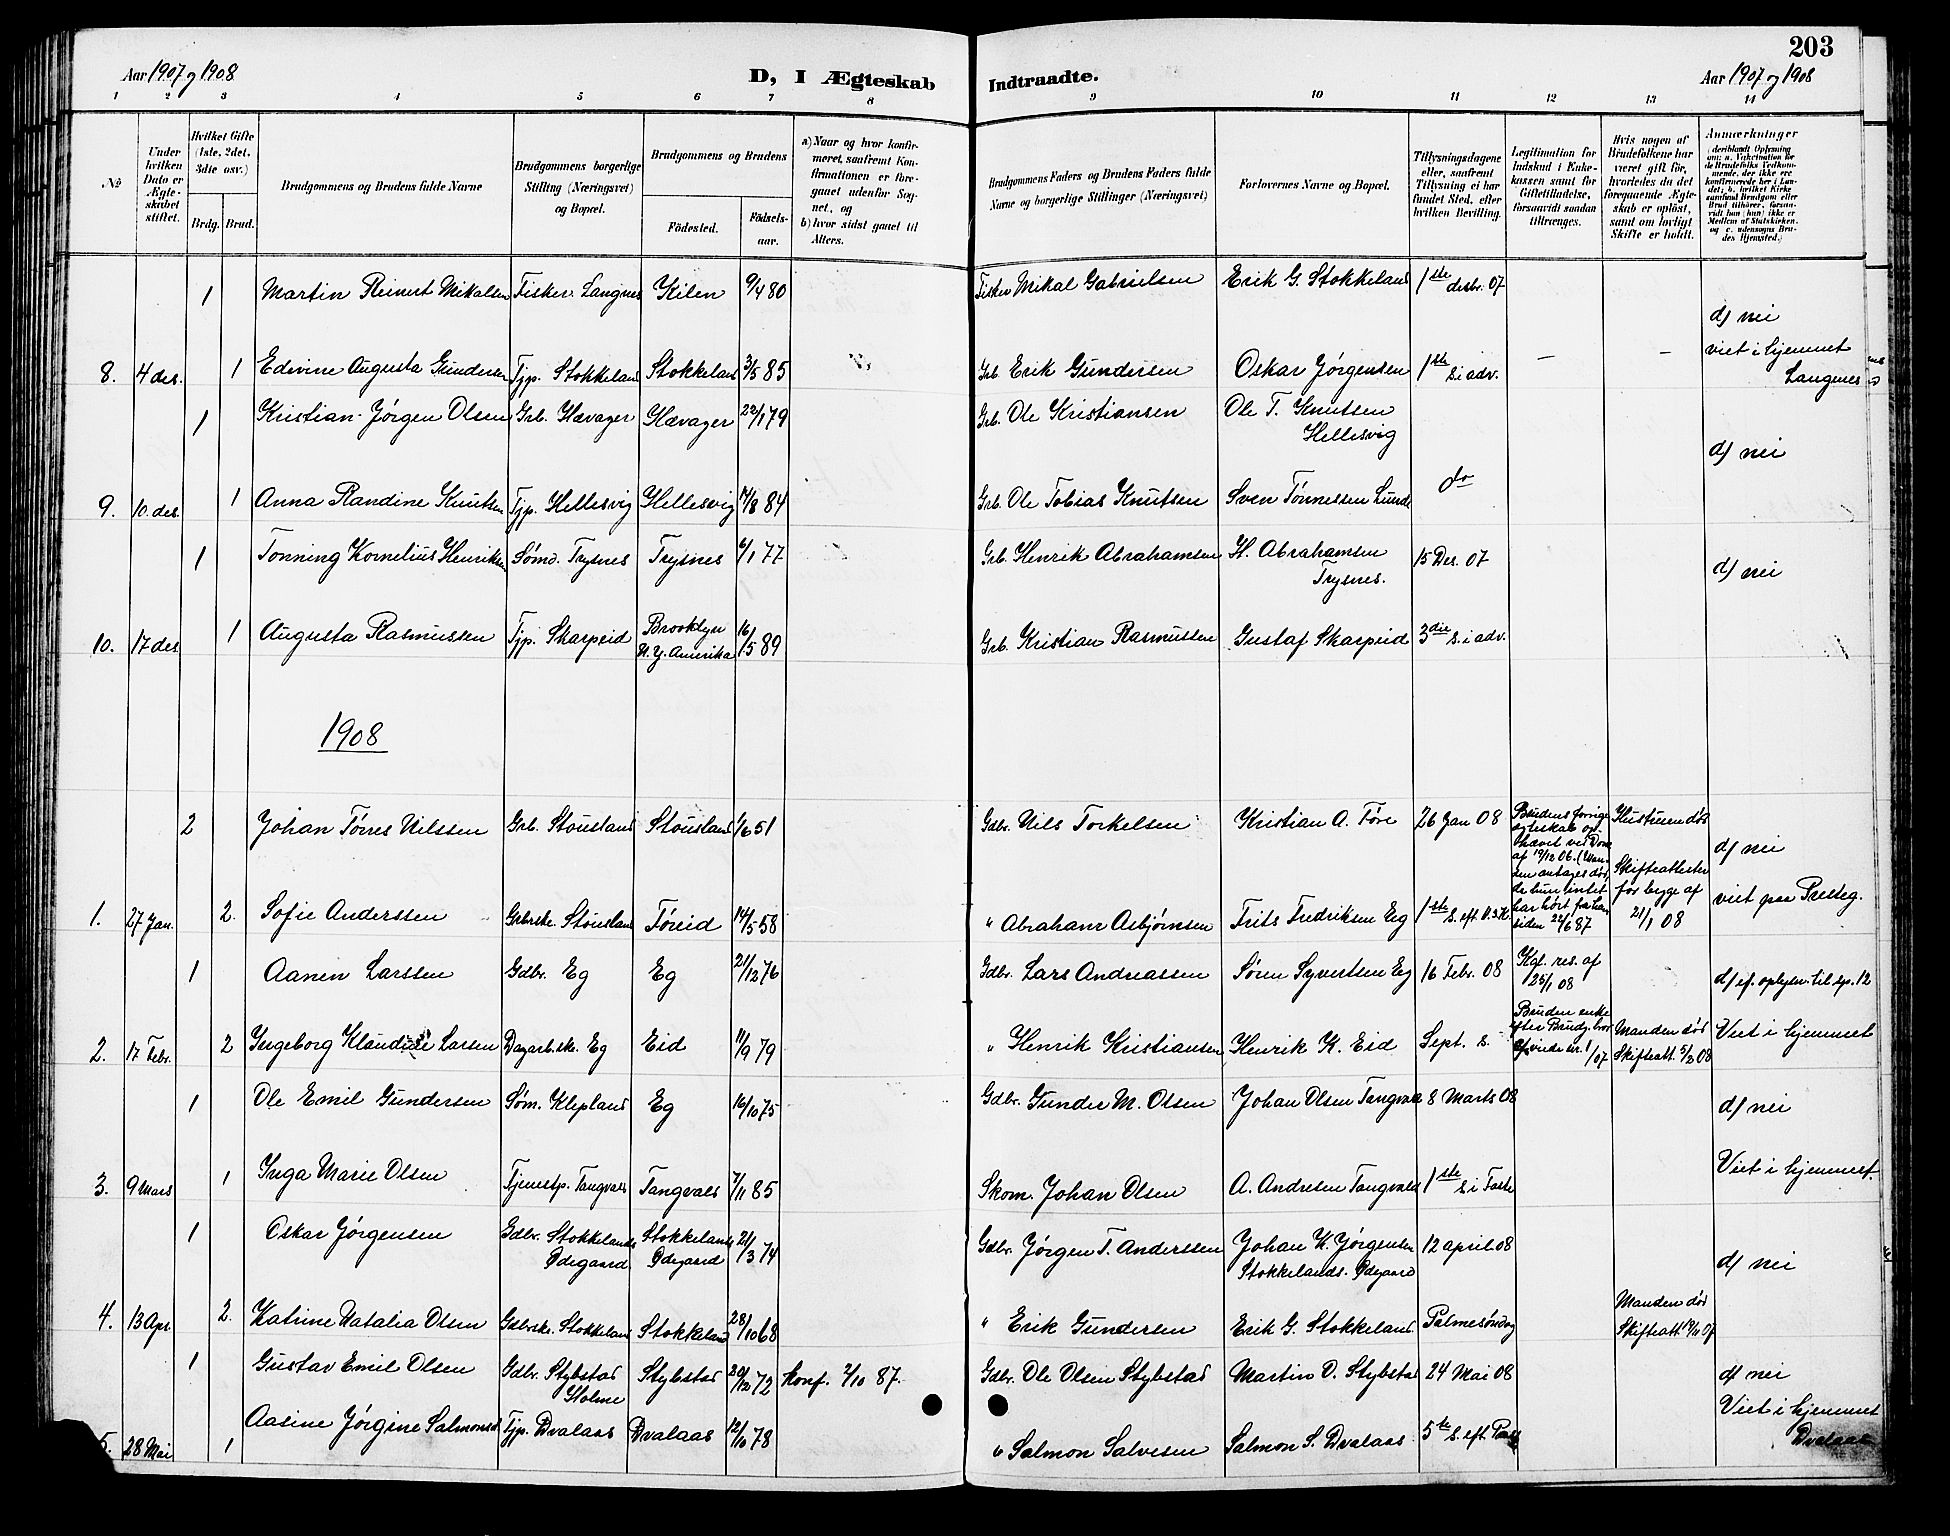 203
Aar 1907 og 1908
D, I Ægteskab Indtraadte.
Aar 1907 og 1908
1 2 3 4 5 6 7 8 9 10 11 12 13 14
No
Under hvilken Dato er Ægteskabet stiftet.
Hvilket Gifte (1ste, 2det, 3die osv.)
Brdg. Brud.
Brudgommens og Brudens fulde Navne
Brudgommens borgerlige Stilling (Næringsvei) og Bopæl.
Brudgommens og Brudens
Födested.
Födsels-aar.
a) Naar og hvor konfirmeret, saafremt Konfirmationen er foregaaet udenfor Sognet, og
b) hvor sidst gaaet til Alters.
Brudgommens Faders og Brudens Faders fulde Navne og borgerlige Stillinger (Næringsvei)
Forlovernes Navne og Bopæl.
Tillysningsdagene eller, saafremt Tillysning ei har fundet Sted, efter hvilken Bevilling.
Legitimation for Indskud i Enkekassen samt for Giftetilladelse, forsaavidt saadan tiltrænges.
Hvis nogen af Brudefolkene har været gift för, hvorledes da det foregaaende Ægteskab er oplöst, samt om lovligt Skifte er holdt.
Anmærkninger
1 Martin Reinert Mikalsen Fisker. Langnes Kilen 9/4 80 Fisker Mikal Gabrielsen Erik G. Stokkeland 1ste desbr. 07
d) nei
8. 4 des. 1 Edivine Augusta Gundersen Tjp. Stokkeland Stokkeland 3/5 85 Grb. Erik Gundersen Oskar Jørgensen 1ste s. i adv. – – viet i hjemmet Langenes
1 Kristian Jørgen Olsen Grb. Hævager Hævager 22/1 79 Grb. Ole Kristiansen Ole T. Knutsen Hellesvig
d) nei
9. 10. des. 1 Anna Randine Knutsen Tjp. Hellesvig Hellesvig 14/8 84 Grb. Ole Tobias Knutsen Sven Tønnessen Lunde do
1 Tonning Kornelius Henriksen Sømd. Trysnes Trysnes 6/1 77 Grb. Henrik Abrahamsen H. Abrahamsen Trysnes. 15 Des. 07
d) nei
10. 17 des 1 Augusta Rasmussen Tjp. Skarpeid Brooklyn N.Y. Amerika 16/5 89 Grb. Kristian Rasmussen Gustaf Skarpeid 3die s. i adv.
1908
2 Johan Tørres Nilssen Grb. Stousland Stousland 1/6 51 Gdbr. Nils Torkelsen Kristian A. Føre 26 Jan 08 Brudens forrige egteskab ophævet ved Dom af 19/12 06. (Manden antages død, da hun intet har hørt fra ham siden 22/6 87 Hustruen død
d) nei
1. 27 Jan. 2. Sofie Anderssen Grbrske. Stousland Føreid 14/5 58 " Abraham Asbjørnsen Frits Fredriksen Eeg 1ste s. eft. H.3.K. Skifteattester for begge af 21/1 08 viet paa Presteg.
1 Aanen Larssen Gdbr. Eg Eg 21/12 76 Gdbr. Lars Andreassen Søren Syvertsen Eg 16 Febr. 08 Kgl. res. af 25/1 08 d) ef. oplysn. til sp. 12
2. 17 Febr. 2 Ingeborg Klaudi Larsen Dagarb.ske. Eg Eid 11/9 79 " Henrik Kristiansen Henrik K. Eid Sept. s. Bruden enke efter Brudg. bror 1/07 Manden død Skifteatt. 5/2 08 Viet i hjemmet
1 Ole Emil Gundersen Søm. Klepland Eg 16/10 75 Gdbr. Gunder M. Olsen Johan Olsen Tangvald 8 Marts 08
d) nei
3. 9 Mars 1 Inga Marie Olsen Tjenestp. Tangvald Tangvald 7/11 85 Skom. Johan Olsen A. Andresen Tangvald 1ste s i Faste Viet i hjemmet.
1 Oskar Jørgensen Gdbr. Stokkelands Ødegaard Stokkelands Ødegaard 21/3 74 Gdbr. Jørgen T. Anderssen Johan K. Jørgensen Stokkelands. Ødegaard 12 april 08
d) nei
4. 13 Apr. 2. Katrine Natalia Olsen Gdbrske. Stokkeland Stokkeland 28/10 68 " Erik Gundersen Erik G. Stokkeland. Palmesøndag Manden død Skifteatt. 19/11 07
1 Gustav Emil Olsen Gdbr. Stybstad Holme Stybstad 20/12 72 Konf. 2/10 87. Gdbr. Ole Olsen Stybstad Martin O. Stybstad 24 Mai 08 d) nei
5. 28 Mai 1 Aasine Jørgine Salmonsd Tjp. Dvalaas Dvalaas 12/10 78 " Salmon Salvesen Salmon S. Dvalaas. 5te s. eft. Paaske Viet i hjemmet Dvalaas